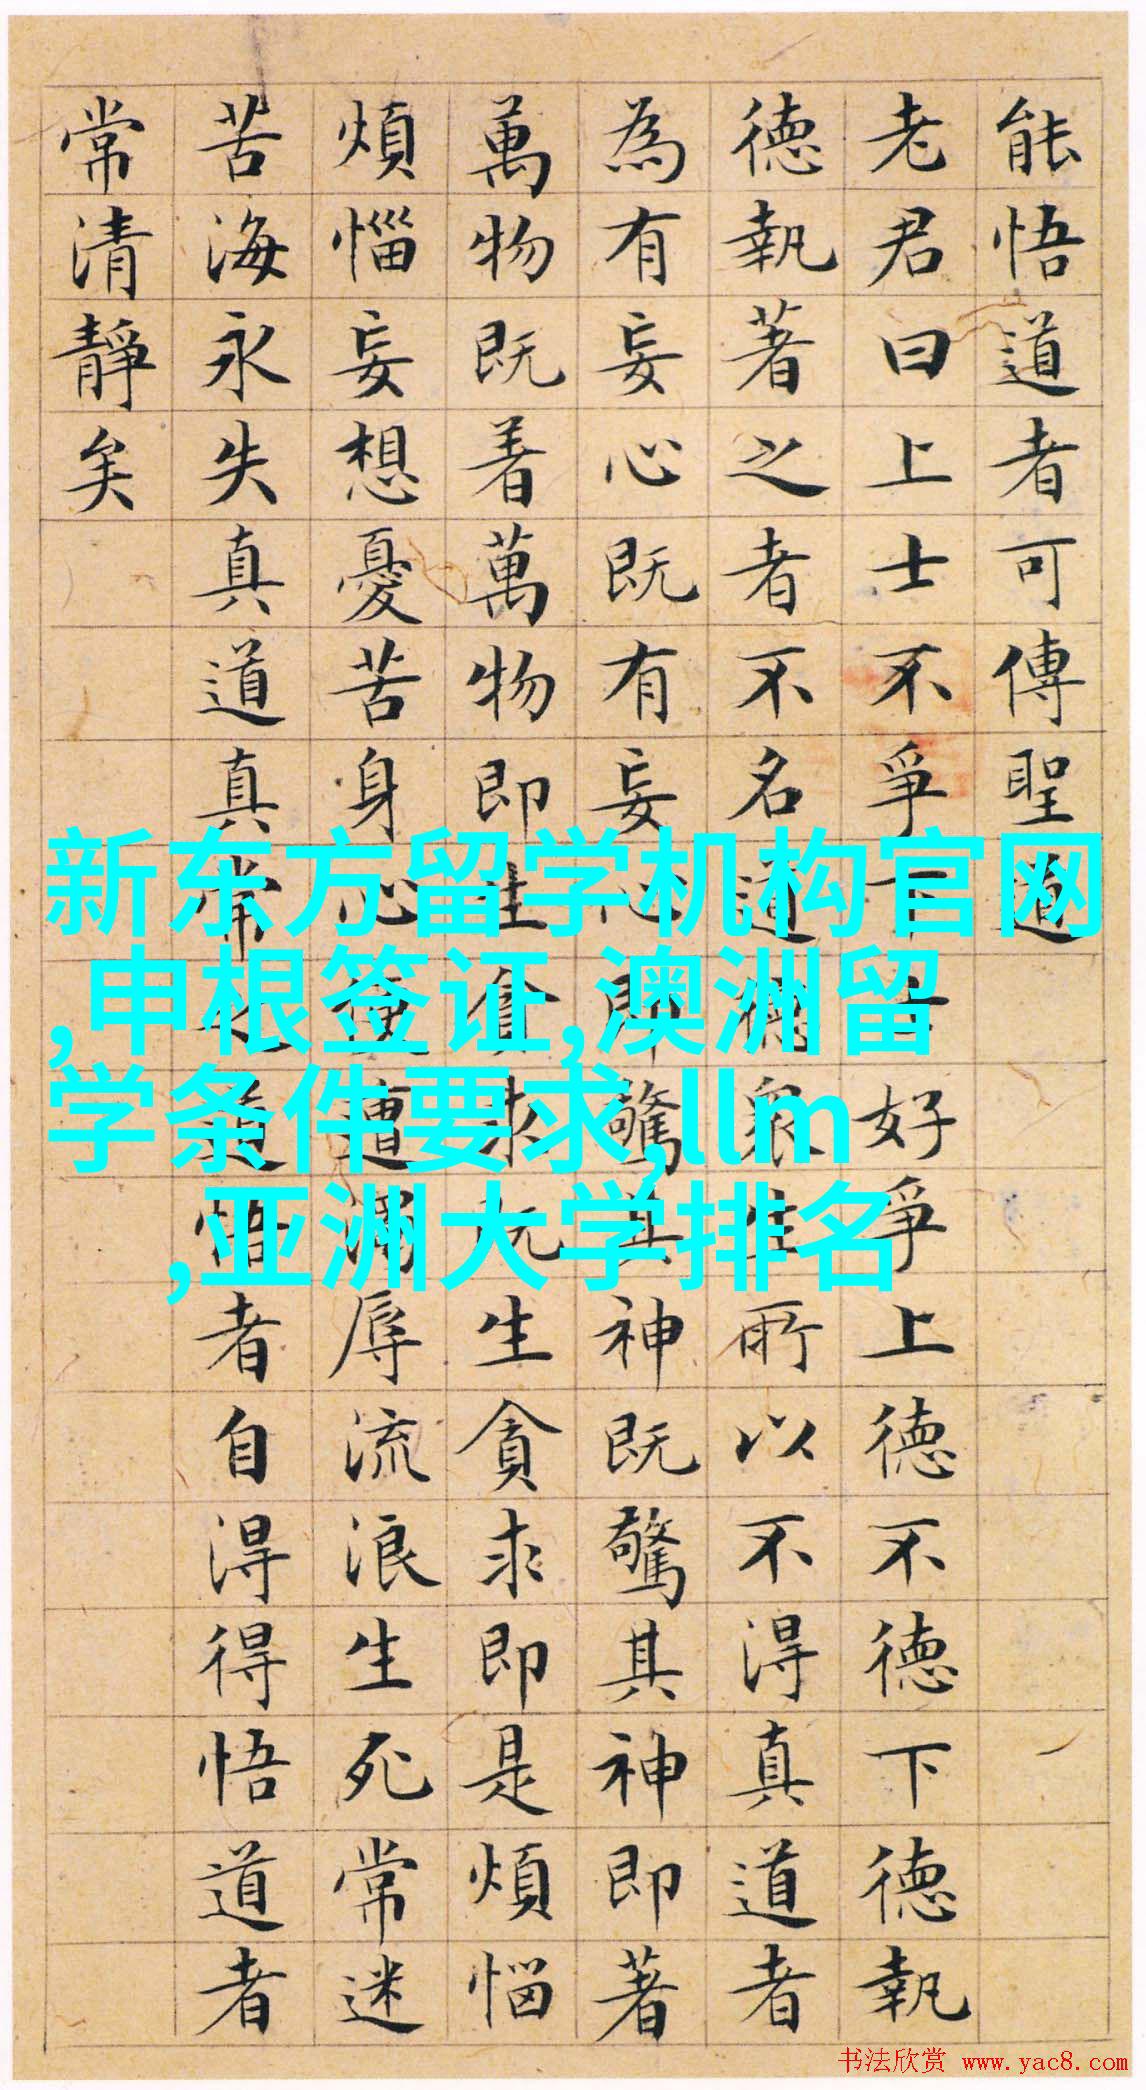 能悟道者可傳聖道
老君曰上士不爭下士好爭上德不德下德執
德執著之者不名道德衆生所以不得真道者
為有妄心既有妄心即驚其神既驚其神即著
萬物既着萬物即生貪求既生貪求即是煩惱
煩惱妄想憂苦身心便遭濁辱流浪生死常迷
苦海永失真道真常之道悟者自得得悟道者
常清靜矣
新东方留学机构官网
,申根签证,澳洲留
学条件要求,llm
,亚洲大学排名
书法欣赏 www.yac8.com